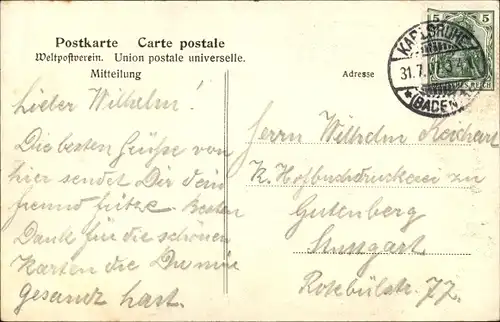 Postkarte Carte postale
Weltpostverein. Union postale universelle.
Mitteilung
Adresse
5 5
KARLSRUHE
31.7.
* (BADEN)
REICH
Lieber Wilhelm!
Die besten Grüße von
hier sendet Dir dein
freund Besten
Dank für die schönen
Karten die Du mir
gesandt hast.
Herrn Wilhelm Reichart
K. Hofbuchdruckerei zu
Gutenberg
Stuttgart
Rotebülstr. 77.